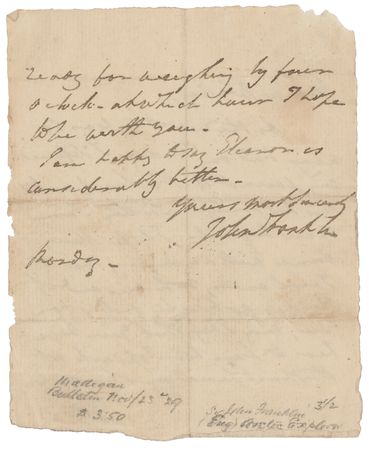 ready for weighing by four
o'clock - at which hour I hope
to be with you -
I am happy to say Eleanor is
considerably better -
yours most sincerely
John Franklin
Monday -
Madigan
Bulletin Nov/23 '29
$ 3.50
Sir John Franklin 3 1/2
(Eng) Arctic Explorer